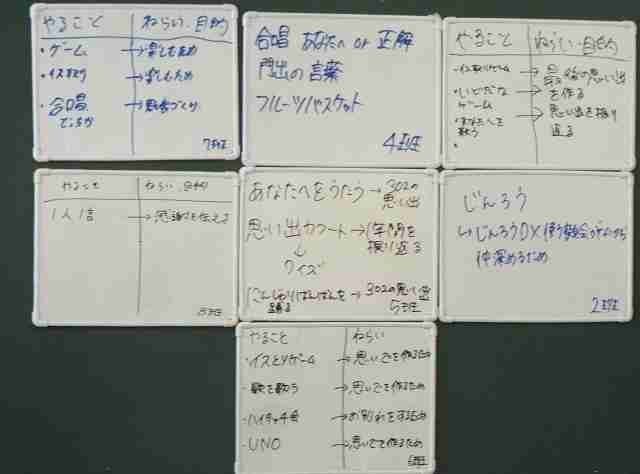 やること ねらい・目的
・ゲーム → 楽しむため
・イスとり → 楽しむため
・合唱 →
7班
合唱 あなたへ or 正解
門出の言葉
フルーツバスケット
4班
やること ねらい・目的
→ 最後の思い出
を作る
ゲーム → 思い出を振り
・あなたへを 返る
歌う
やること ねらい・目的
1人1言 → 感謝を伝える
あなたへをうたう → 302の
思い出
思い出カフート → 1年間を
↓ 振り返る
クイズ
→ 302の思い出
踊る 5班
じんろう
↳ じんろうDX
仲深めるため
2班
やること ねらい
・イスとりゲーム → 思いでを作るため
・歌を歌う → 思いでを作るため
・ハイチャチ会 → お別れをするため
・UNO → 思いでを作るため
6班